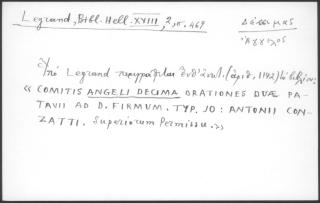 Legrand, Bibl. Hell. XVIII, 2, σ. 469
Δέκιμας
Ἄγγελος
Ὑπὸ Legrand περιγράφεται ὑπ' ἀριθ. (ἀριθ. 1142) τὸ βιβλίον:
« COMITIS ANGELI DECIMA ORATIONES DUÆ PA-
TAVII AD D. FIRMUM. TYP. JO: ANTONII CON-
ZATTI. Superiorum Permissu. »